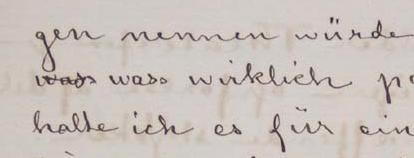 gen nennen würde
was was wirklich
halte ich es für ein